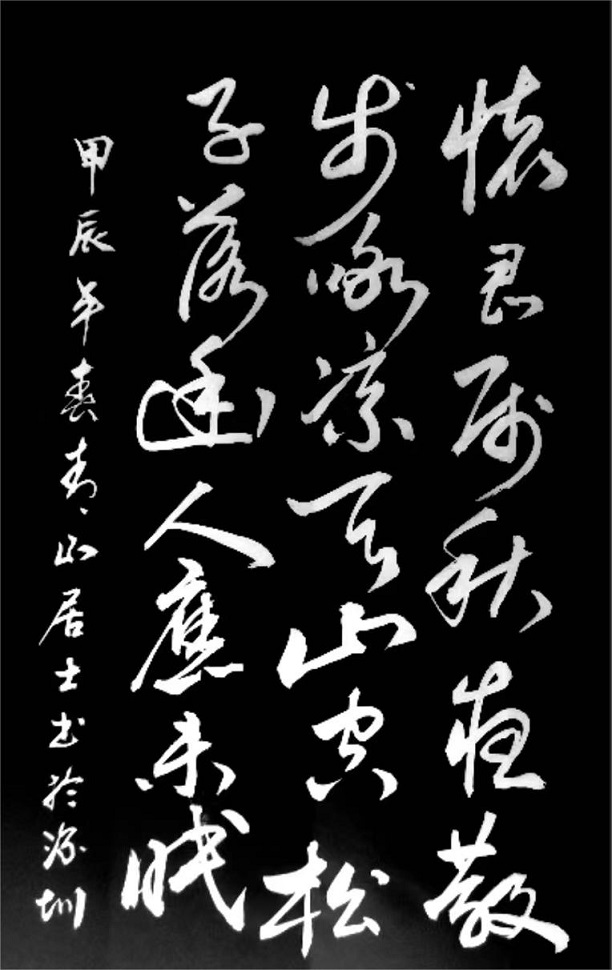 懷君属秋夜散
步咏凉天山空松
子落幽人應未眠
甲辰年春青山居士书於深圳